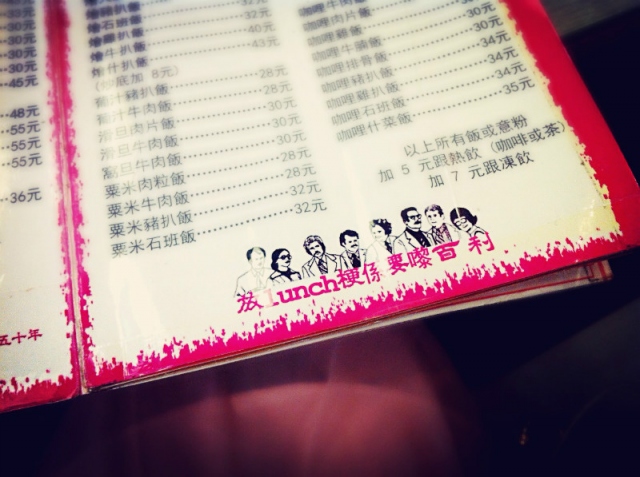 30元
30元
30元
45元
48元
55元
55元
55元
36元
五十年
32元
燴石班飯 32元
30元
燴牛扒飯 40元
燴什扒飯 43元
(炒底加 8元)
茄汁豬扒飯 28元
茄汁牛肉飯 28元
滑旦肉片飯 30元
滑旦牛肉飯 30元
窩旦牛肉飯 30元
粟米肉粒飯 28元
粟米牛肉飯 28元
粟米豬扒飯 32元
粟米石班飯 32元
咖喱牛肉飯
咖喱肉片飯
咖喱雞飯 30元
咖喱牛腩飯 30元
咖喱排骨飯 34元
咖喱豬扒飯 34元
咖喱雞扒飯 34元
咖喱石班飯 35元
咖喱什菜飯
以上所有飯或意粉
加 5 元跟熱飲 (咖啡或茶)
加 7 元跟凍飲
lunch梗係要嚟百利